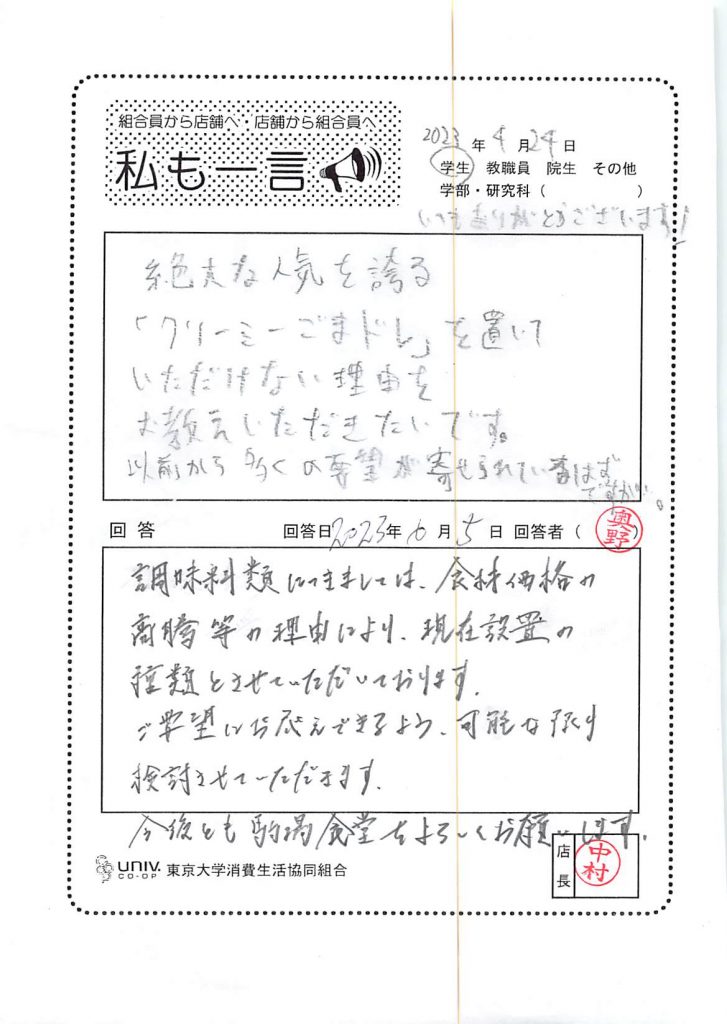 組合員から店舗へ・店舗から組合員へ
私も一言
2023年 4月 24日
学生 教職員 院生 その他
学部・研究科( )
いつもありがとうございます!
絶大な人気を誇る
「クリーミーごまドレ」を置いて
いただけない理由を
お教えいただきたいです。
以前から多くの要望が寄せられているはず
ですが…。
回答 回答日 2023年 6月 5日 回答者( 奥野 )
調味料類につきましては、食材価格の
高騰等の理由により、現在設置の
種類とさせていただいております。
ご要望にお応えできるよう、可能な限り
検討させていただきます。
今後とも駒場食堂をよろしくお願いします。
UNIV. CO-OP 東京大学消費生活協同組合
店長 中村